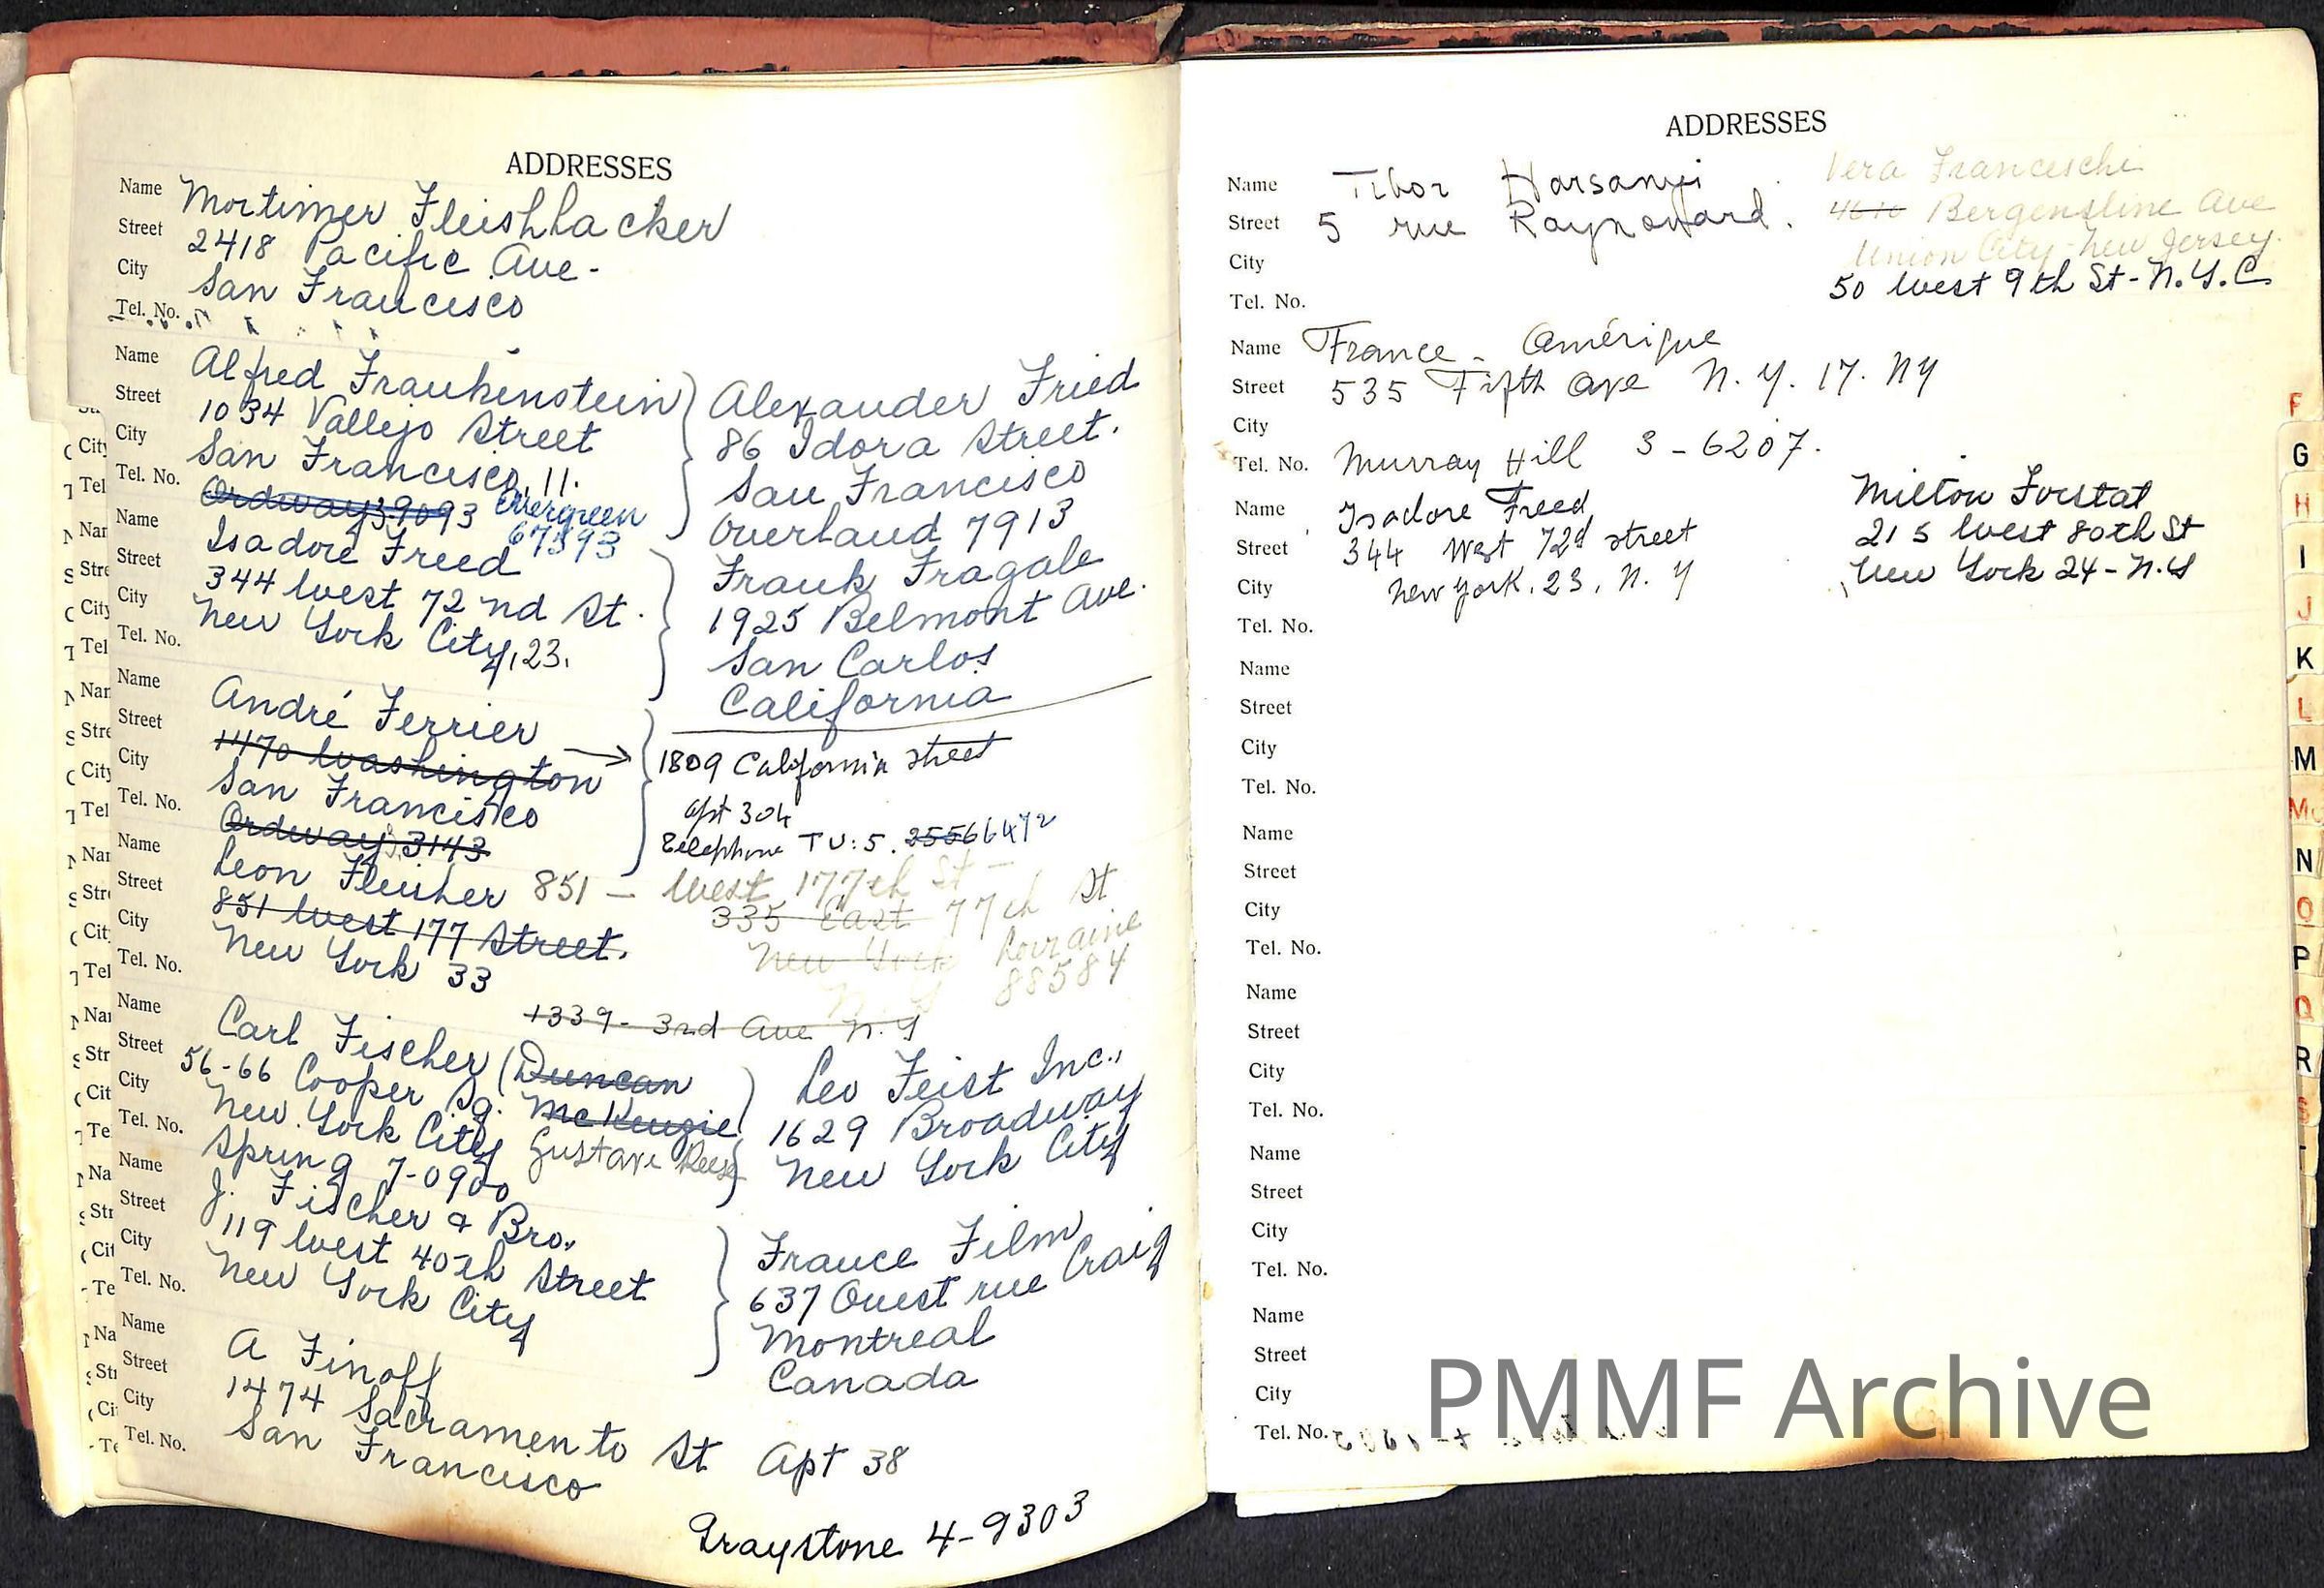 ADDRESSES
Name Mortimer Fleishhacker
Street 2418 Pacific Ave -
City San Francisco
Tel. No.
Name Alfred Frankenstein
Street 1034 Vallejo Street
City San Francisco, 11.
Tel. No. Ordway 39093 Evergreen
67393
Alexander Fried
86 Idora Street.
San Francisco
Overland 7913
Name Isadore Freed
Street 344 West 72nd St.
City New York City, 23.
Tel. No.
Frank Fragale
1925 Belmont Ave.
San Carlos
California
Name André Ferrier
Street 1470 Washington
City San Francisco
Tel. No. Ordway 3143
1809 California Street
apt 304
Telephone TU: 5.
Name Leon Fleisher 851 - West 177th St -
Street 851 West 177 Street.
City New York 33
Tel. No.
335 East 77th St
New York Lorraine
N.Y 88584
1339 - 3rd Ave N.Y
Name Carl Fischer (Duncan
Street 56-66 Cooper Sq. McKenzie
City New York City Gustave Reese
Tel. No. Spring 7-0900
Leo Feist Inc.,
1629 Broadway
New York City
Name J. Fischer & Bro.
Street 119 West 40th Street
City New York City
Tel. No.
France Film
637 Ouest rue Craig
Montreal
Canada
Name A Finoff
Street 1474 Sacramento St Apt 38
City San Francisco
Tel. No.
Graystone 4-9303
ADDRESSES
Name Tibor Harsanyi
Street 5 rue Raynouard.
City
Tel. No.
Vera Franceschi
4610 Bergenline Ave
Union City - New Jersey.
50 West 9th St - N.Y.C.
Name France - Amérique
Street 535 Fifth Ave N.Y. 17. NY
City
Tel. No. Murray Hill 3-6207.
Name Isadore Freed
Street 344 West 72d street
City New York. 23, N.Y
Tel. No.
Milton Forstat
215 West 80th St
New York 24 - N.Y
Name
Street
City
Tel. No.
Name
Street
City
Tel. No.
Name
Street
City
Tel. No.
Name
Street
City
Tel. No.
Name
Street
City
Tel. No.
F
G
H
I
J
K
L
M
Mc
N
O
P
Q
R
S
PMMF Archive